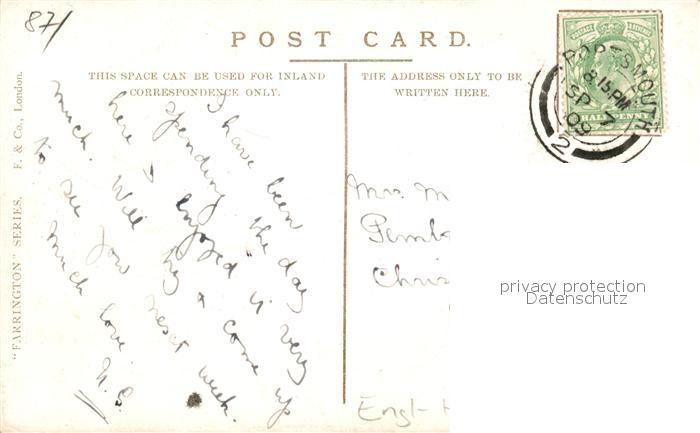 87/
POST CARD.
THIS SPACE CAN BE USED FOR INLAND
CORRESPONDENCE ONLY.
THE ADDRESS ONLY TO BE
WRITTEN HERE.
POSTAGE REVENUE
HALFPENNY
PORTSMOUTH
8.15 PM
SP 7
09
2
"FARRINGTON" SERIES. F. & Co., London.
I have been
spending the day
here & enjoyed it very
much. Will try & come up
to see you next week.
Much love.
N.S.
Mrs. M
Pemb
Chris
privacy protection
Datenschutz
Engl-H